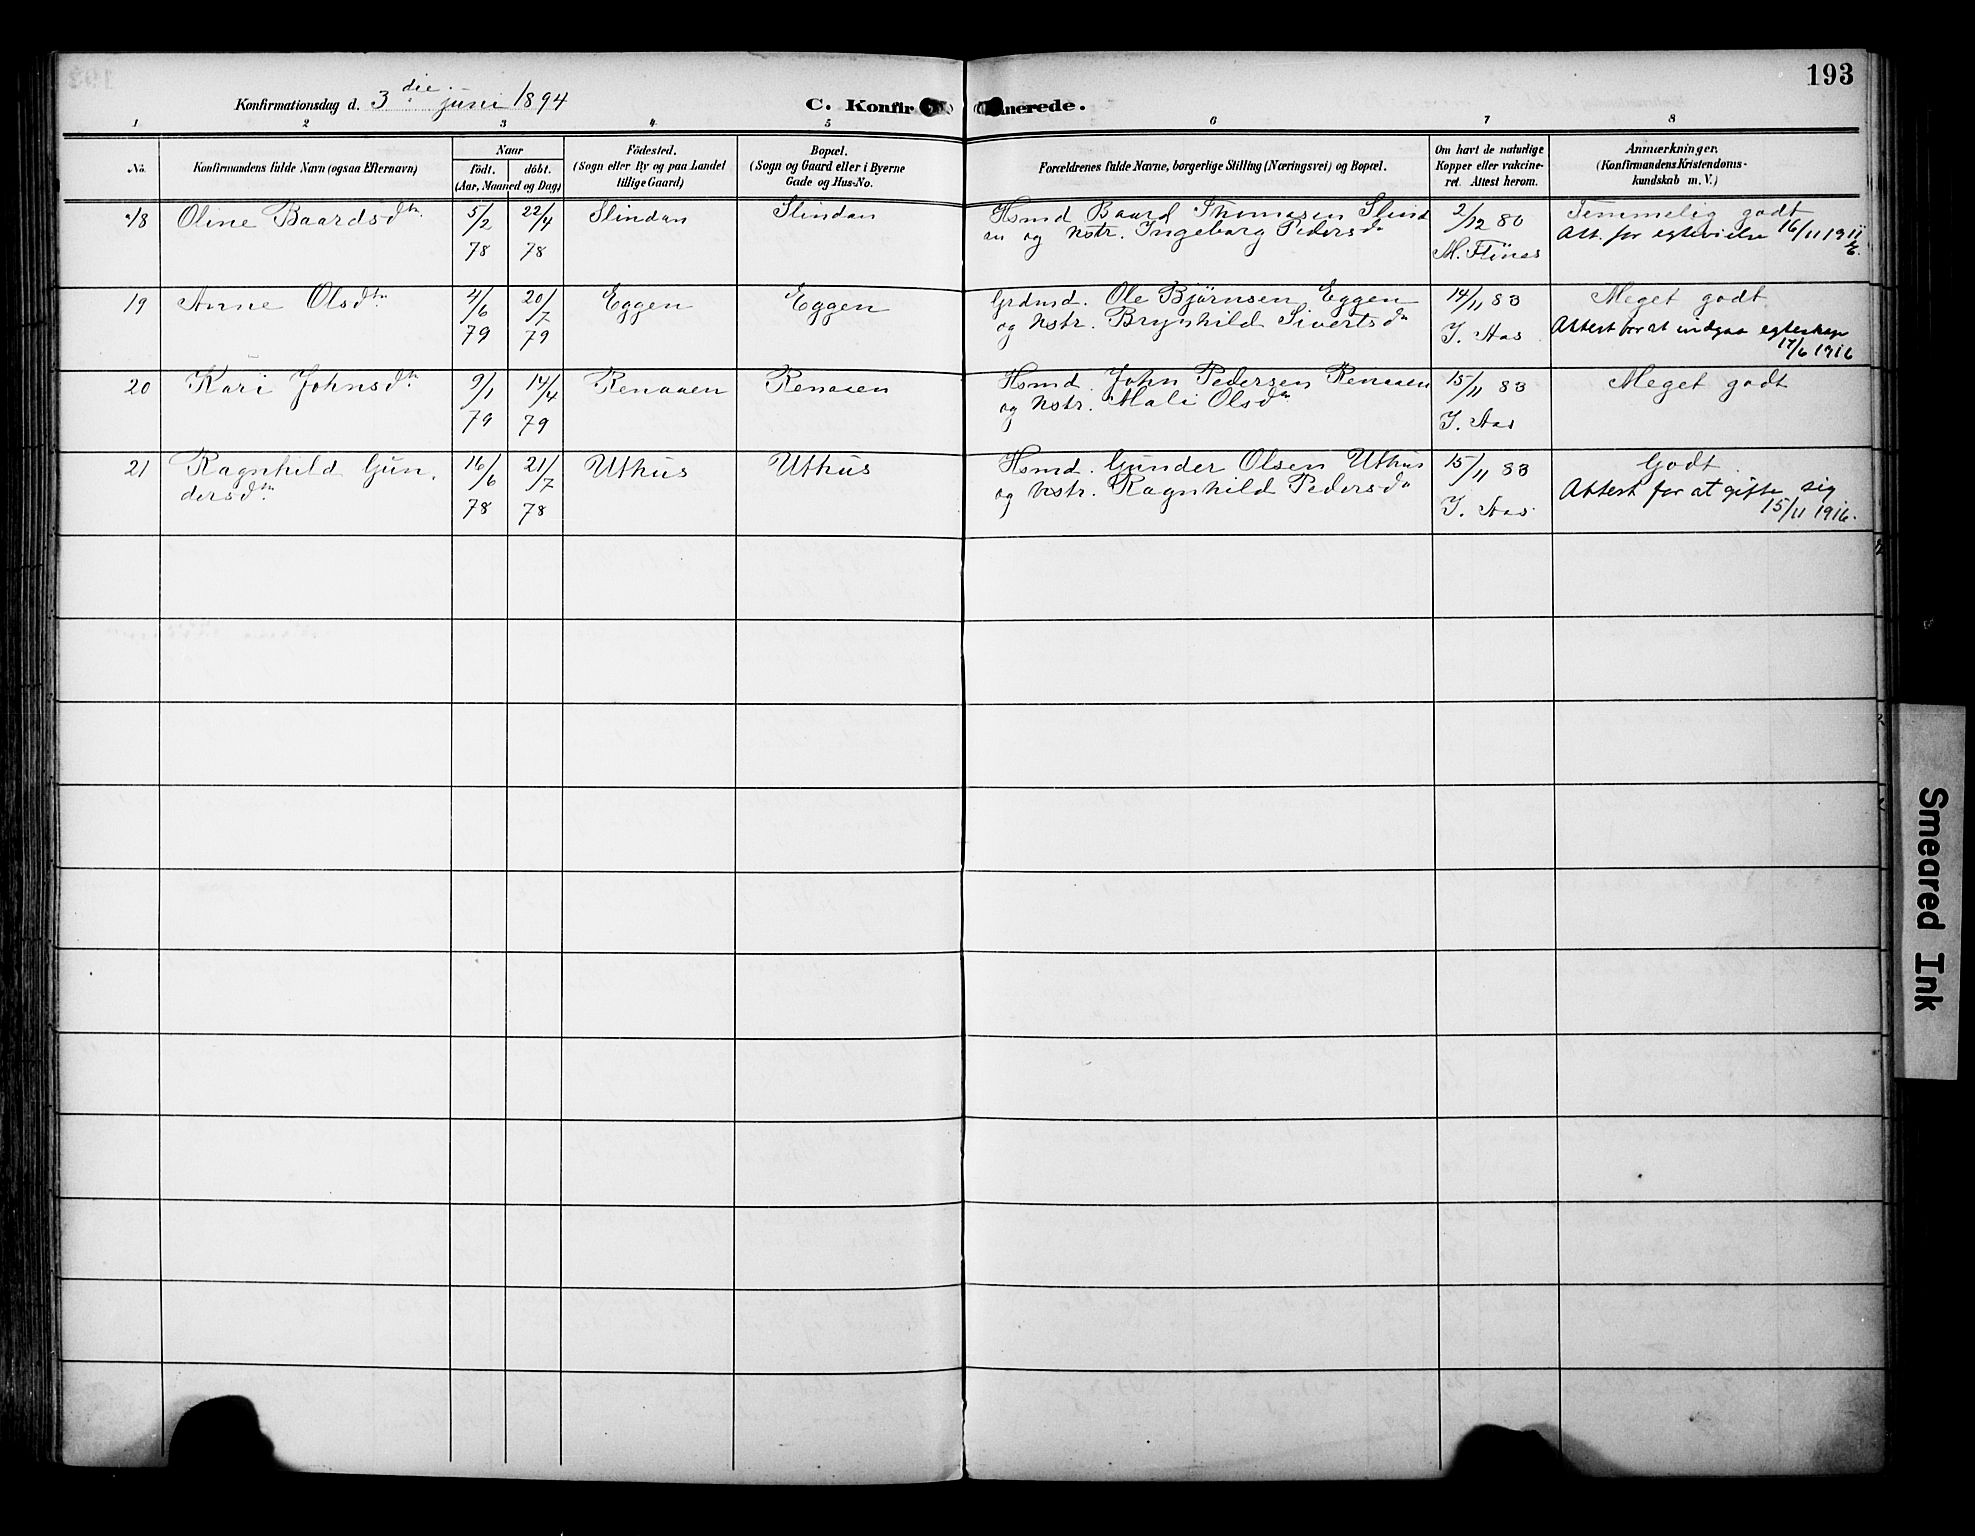 193
Konfirmationsdag d. 3die juni 1894
C. Konfirmerede.
1 2 3 4 5 6 7 8
No.
Konfirmandens fulde Navn (ogsaa Efternavn)
Naar
født. døbt.
(Aar, Maaned og Dag)
Födested.
(Sogn eller By og paa Landet
tillige Gaard)
Bopæl.
(Sogn og Gaard eller i Byerne
Gade og Hus-No.
Forældrenes fulde Navne, borgerlige Stilling (Næringsvei) og Bopæl.
Om havt de naturlige
Kopper eller vakcine-
ret. Attest herom.
Anmærkninger.
(Konfirmandens Kristendoms-
kundskab m. V.)
18 Oline Baardsdtr. 5/2 78 22/4 78 Slindan Slindan
Hsmd. Baard Thomasen Slind
an og Kstr. Ingeborg Pedersdr
2/12 80
M. Flines
Temmelig godt
Att. for egtevielse 16/11 1911
19 Anne Olsdtr. 4/6 79 20/7 79 Eggen Eggen
Grdmd. Ole Bjørnsen Eggen
og Kstr. Brynhild Sivertsdr
14/11 83
J. Aas
Meget godt
Attest for at indgaa egteskap
17/6 1916
20 Kari Johnsdtr. 9/1 79 14/4 79 Renaaen Renaaen
Hsmd. John Pedersen Renaaen
og Kstr. Mali Olsdr
15/11 83
J. Aas
Meget godt
21 Ragnhild Gun.
dersdtr. 16/6 78 21/7 78 Uthus Uthus
Hsmd. Gunder Olsen Uthus
og Kstr. Ragnhild Pedersdr
15/11 83
J. Aas
Godt
Attest for at gifte sig
15/11 1916.
Smeared Ink